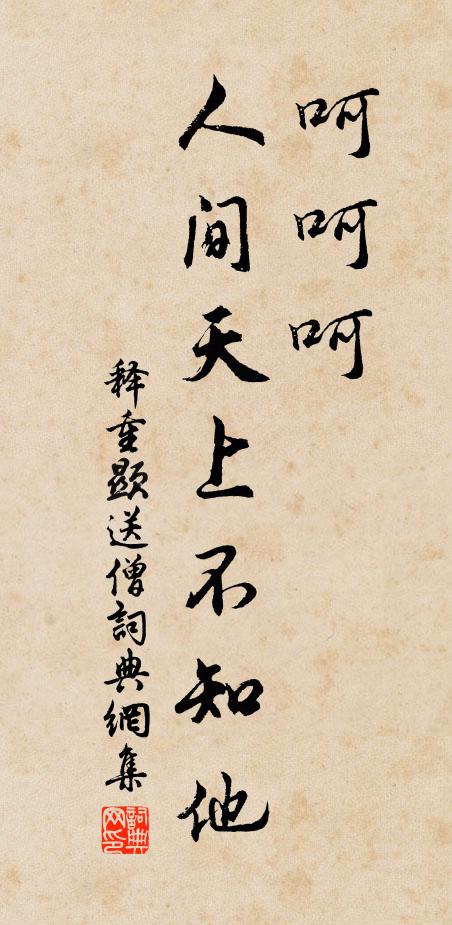 呵呵呵
人间天上不知他
释重顯送僧詞典網集
詞典网印